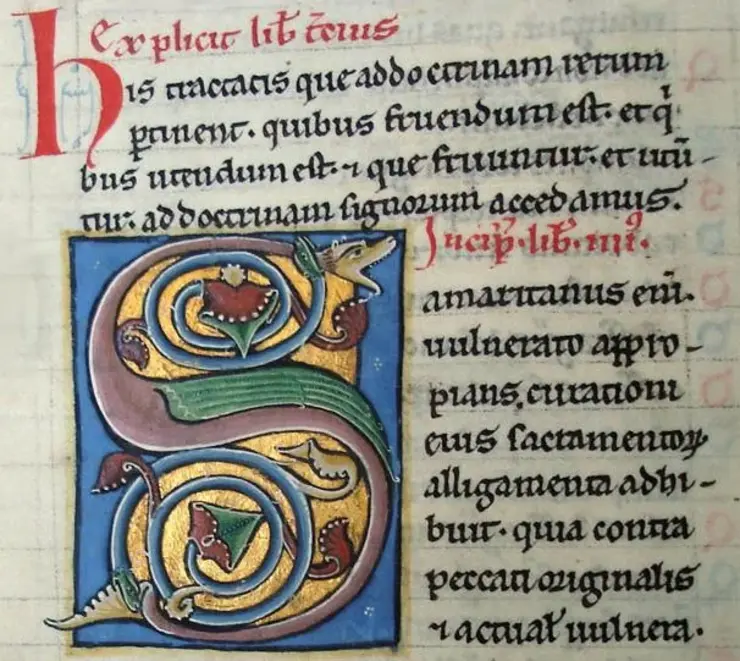 explicit lib̄ t̄cius
His tractatis que ad doctrinam rerum
ꝑtinent. quibus fruendum est. et qͥ
bus utendum est. ⁊ que fruuntur. et utū-
tur. ad doctrinam signorum accedamus.
Incip̄. lib̄. iiijꝰ.
Samaritanus eni̅.
uulnerato appro-
pians. curationi
eius sacramentoꝝ
alligamenta adhi-
buit. quia contra
peccati originalis
⁊ actual̄ uulnera.